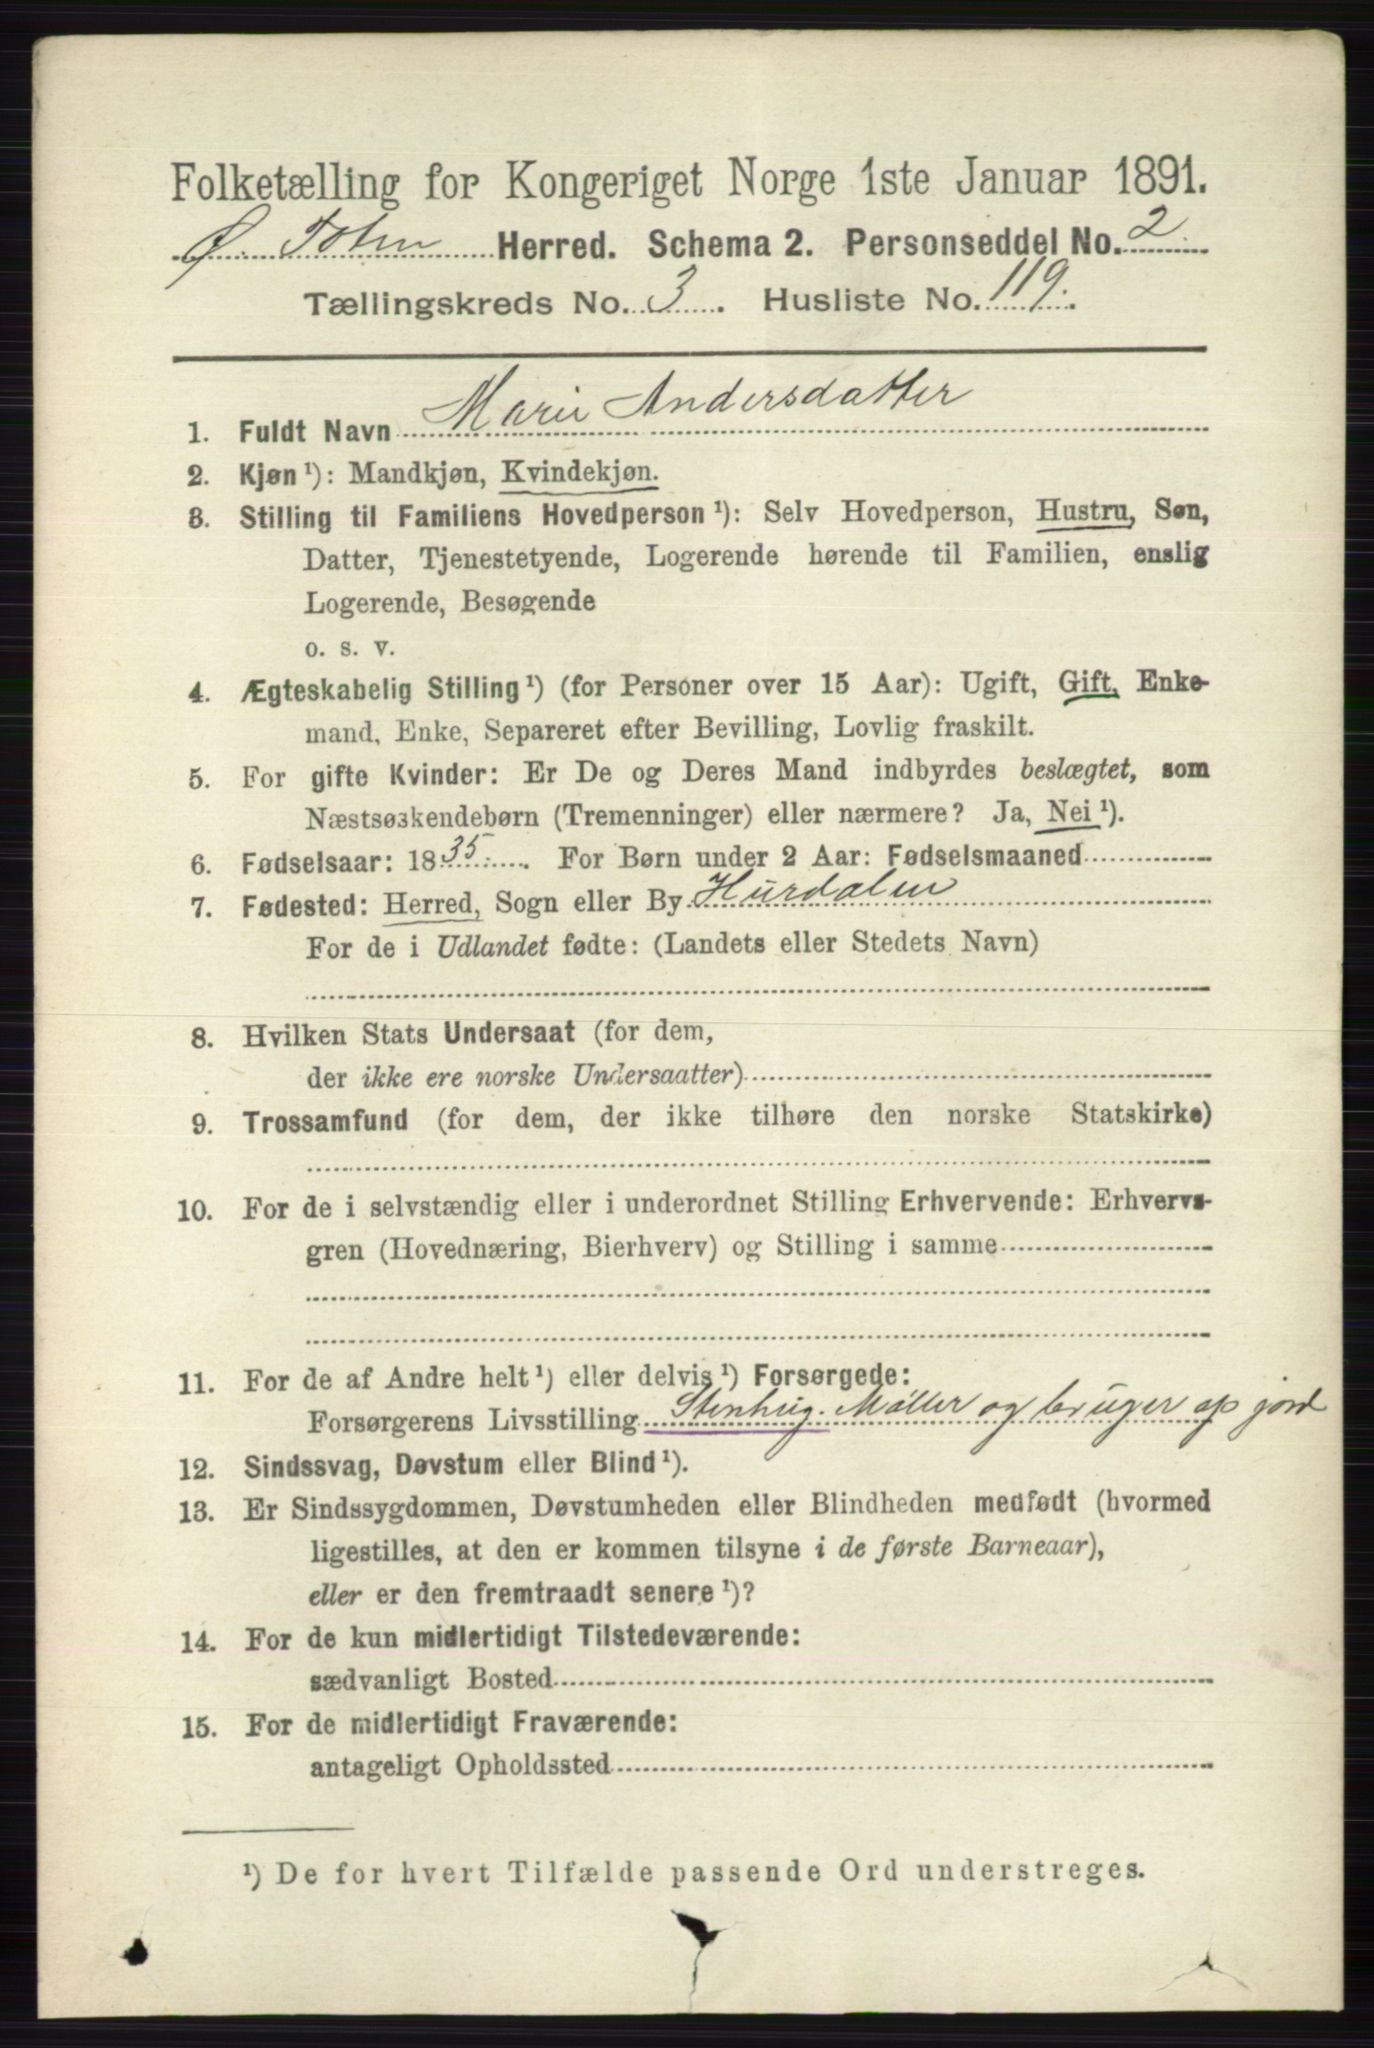 Folketælling for Kongeriget Norge 1ste Januar 1891.
Ø. Toten Herred. Schema 2. Personseddel No. 2
Tællingskreds No. 3. Husliste No. 119.
1. Fuldt Navn Marie Andersdatter
2. Kjøn¹): Mandkjøn, Kvindekjøn.
3. Stilling til Familiens Hovedperson¹): Selv Hovedperson, Hustru, Søn,
Datter, Tjenestetyende, Logerende hørende til Familien, enslig
Logerende, Besøgende
o. s. v.
4. Ægteskabelig Stilling¹) (for Personer over 15 Aar): Ugift, Gift, Enke-
mand, Enke, Separeret efter Bevilling, Lovlig fraskilt.
5. For gifte Kvinder: Er De og Deres Mand indbyrdes beslægtet, som
Næstsøskendebørn (Tremenninger) eller nærmere? Ja, Nei¹).
6. Fødselsaar: 1835. For Børn under 2 Aar: Fødselsmaaned
7. Fødested: Herred, Sogn eller By Hurdalen
For de i Udlandet fødte: (Landets eller Stedets Navn)
8. Hvilken Stats Undersaat (for dem,
der ikke ere norske Undersaatter)
9. Trossamfund (for dem, der ikke tilhøre den norske Statskirke)
10. For de i selvstændig eller i underordnet Stilling Erhvervende: Erhvervs-
gren (Hovednæring, Bierhverv) og Stilling i samme
11. For de af Andre helt¹) eller delvis¹) Forsørgede:
Forsørgerens Livsstilling Stenhug. Møller og bruger af jord
12. Sindssvag, Døvstum eller Blind¹).
13. Er Sindssygdommen, Døvstumheden eller Blindheden medfødt (hvormed
ligestilles, at den er kommen tilsyne i de første Barneaar),
eller er den fremtraadt senere¹)?
14. For de kun midlertidigt Tilstedeværende:
sædvanligt Bosted
15. For de midlertidigt Fraværende:
antageligt Opholdssted
¹) De for hvert Tilfælde passende Ord understreges.